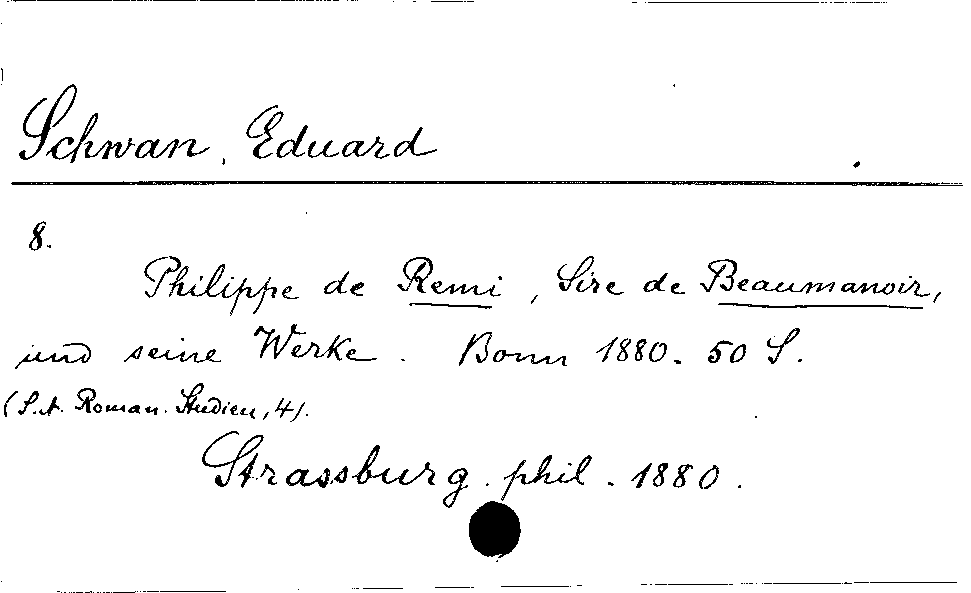 Schwan, Eduard
8.
Philippe de Remi, Sire de Beaumanoir,
und seine Werke. Bonn 1880. 50 S.
(S.A. Roman. Studien, 4).
Strassburg. phil. 1880.